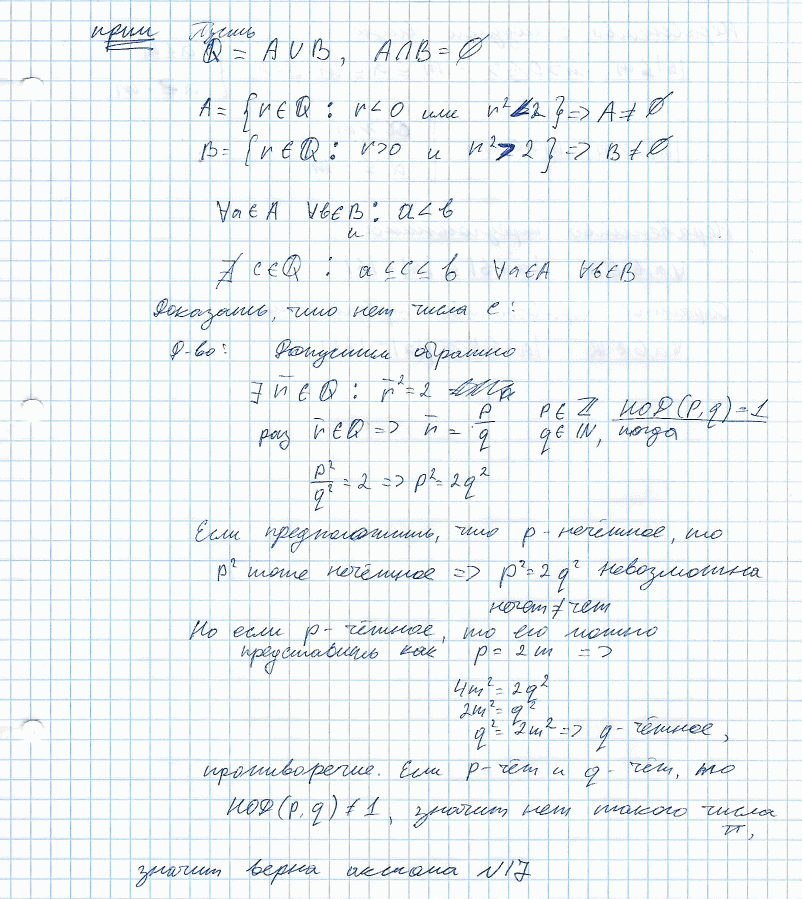 прим Пусть
Q = A ∪ B, A ∩ B = ∅
A = {r ∈ Q : r < 0 или r² < 2} => A ≠ ∅
B = {r ∈ Q : r > 0 и r² > 2} => B ≠ ∅
∀a ∈ A ∀b ∈ B : a < b
и
∄ c ∈ Q : a ≤ c ≤ b ∀a ∈ A ∀b ∈ B
Доказать, что нет числа c:
Д-во: Допустим обратно
∃ r̄ ∈ Q : r̄² = 2
раз r̄ ∈ Q => r̄ = p/q p ∈ Z q ∈ IN, НОД(p,q) = 1 тогда
p²/q² = 2 => p² = 2q²
Если предположить, что p - нечётное, то
p² тоже нечётное => p² = 2q² невозможна
нечет ≠ чет
Но если p - чётное, то его можно
представить как p = 2m =>
4m² = 2q²
2m² = q²
q² = 2m² => q - чётное,
противоречие. Если p - чёт и q - чёт, то
НОД(p,q) ≠ 1, значит нет такого числа
значит верна аксиома N17